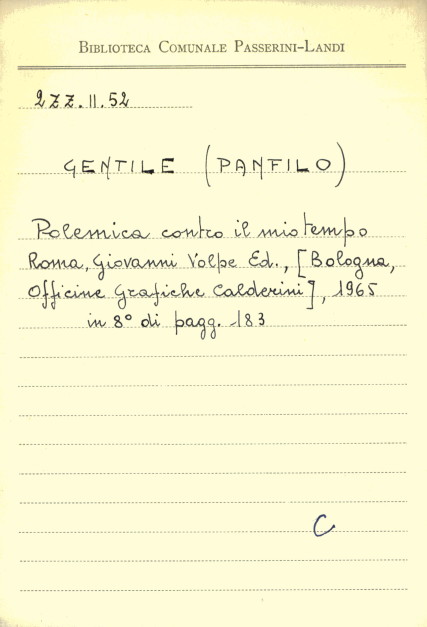 BIBLIOTECA COMUNALE PASSERINI-LANDI
2ZZ.II.52
GENTILE (PANFILO)
Polemica contro il mio tempo
Roma, Giovanni Volpe Ed., [Bologna,
Officine Grafiche Calderini], 1965
in 8° di pagg. 183
C